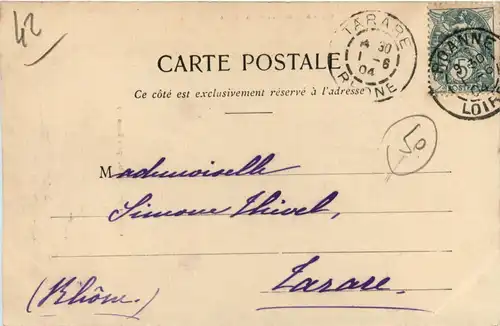 42
TARARE
4 30
1 - 6
04
RHONE
ROANNE
LOIRE
CARTE POSTALE
Ce côté est exclusivement réservé à l'adresse
Mademoiselle
Simone Thivel,
Tarare.
(Rhône.)